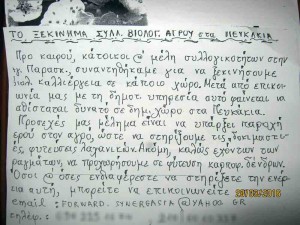 ΤΟ ΞΕΚΙΝΗΜΑ ΣΥΛΛ. ΒΙΟΛΟΓ. ΑΓΡΟΥ στα ΠΕΥΚΑΚΙΑ
Προ καιρού, κάτοικοι @ μέλη συλλογικοτήτων στην
γ. Παρασκ., συναντηθήκαμε για να ξεκινήσουμε
βιολ. καλλιέργεια σε κάποιο χώρο. Μετά από επικοι-
ωνία μας με τη δημοτ. υπηρεσία αυτό φαίνεται να
αθίσταται δυνατό σε δημ. χώρο στα Πευκάκια.
Προσεχές μας μέλημα είναι να υπάρξει παροχή
ερού στον αγρό, ώστε να στηρίξουμε τις δοκιμαστι-
ές φυτεύσεις λαχανικών. Ακόμη, καλώς εχόντων των
ραγμάτων, να προχωρήσουμε σε φύτευση καρποφ. δένδρων.
Όσοι @ όσες ενδιαφέρεστε να στηρίξετε την ενέρ-
εια αυτή, μπορείτε να επικοινωνείτε
email : FORWARD. SYNERGASIA @YAHOO. GR
τηλέφ. :